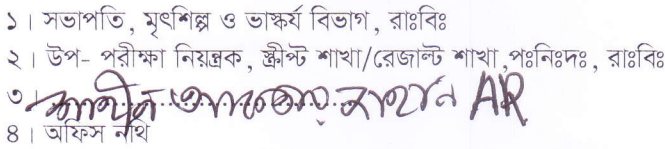 ১। সভাপতি, মৃৎশিল্প ও ভাস্কর্য বিভাগ, রাঃবিঃ
২। উপ- পরীক্ষা নিয়ন্ত্রক, স্ক্রীপ্ট শাখা/রেজাল্ট শাখা,পঃনিঃদঃ, রাঃবিঃ
৩। AR
৪। অফিস নথি